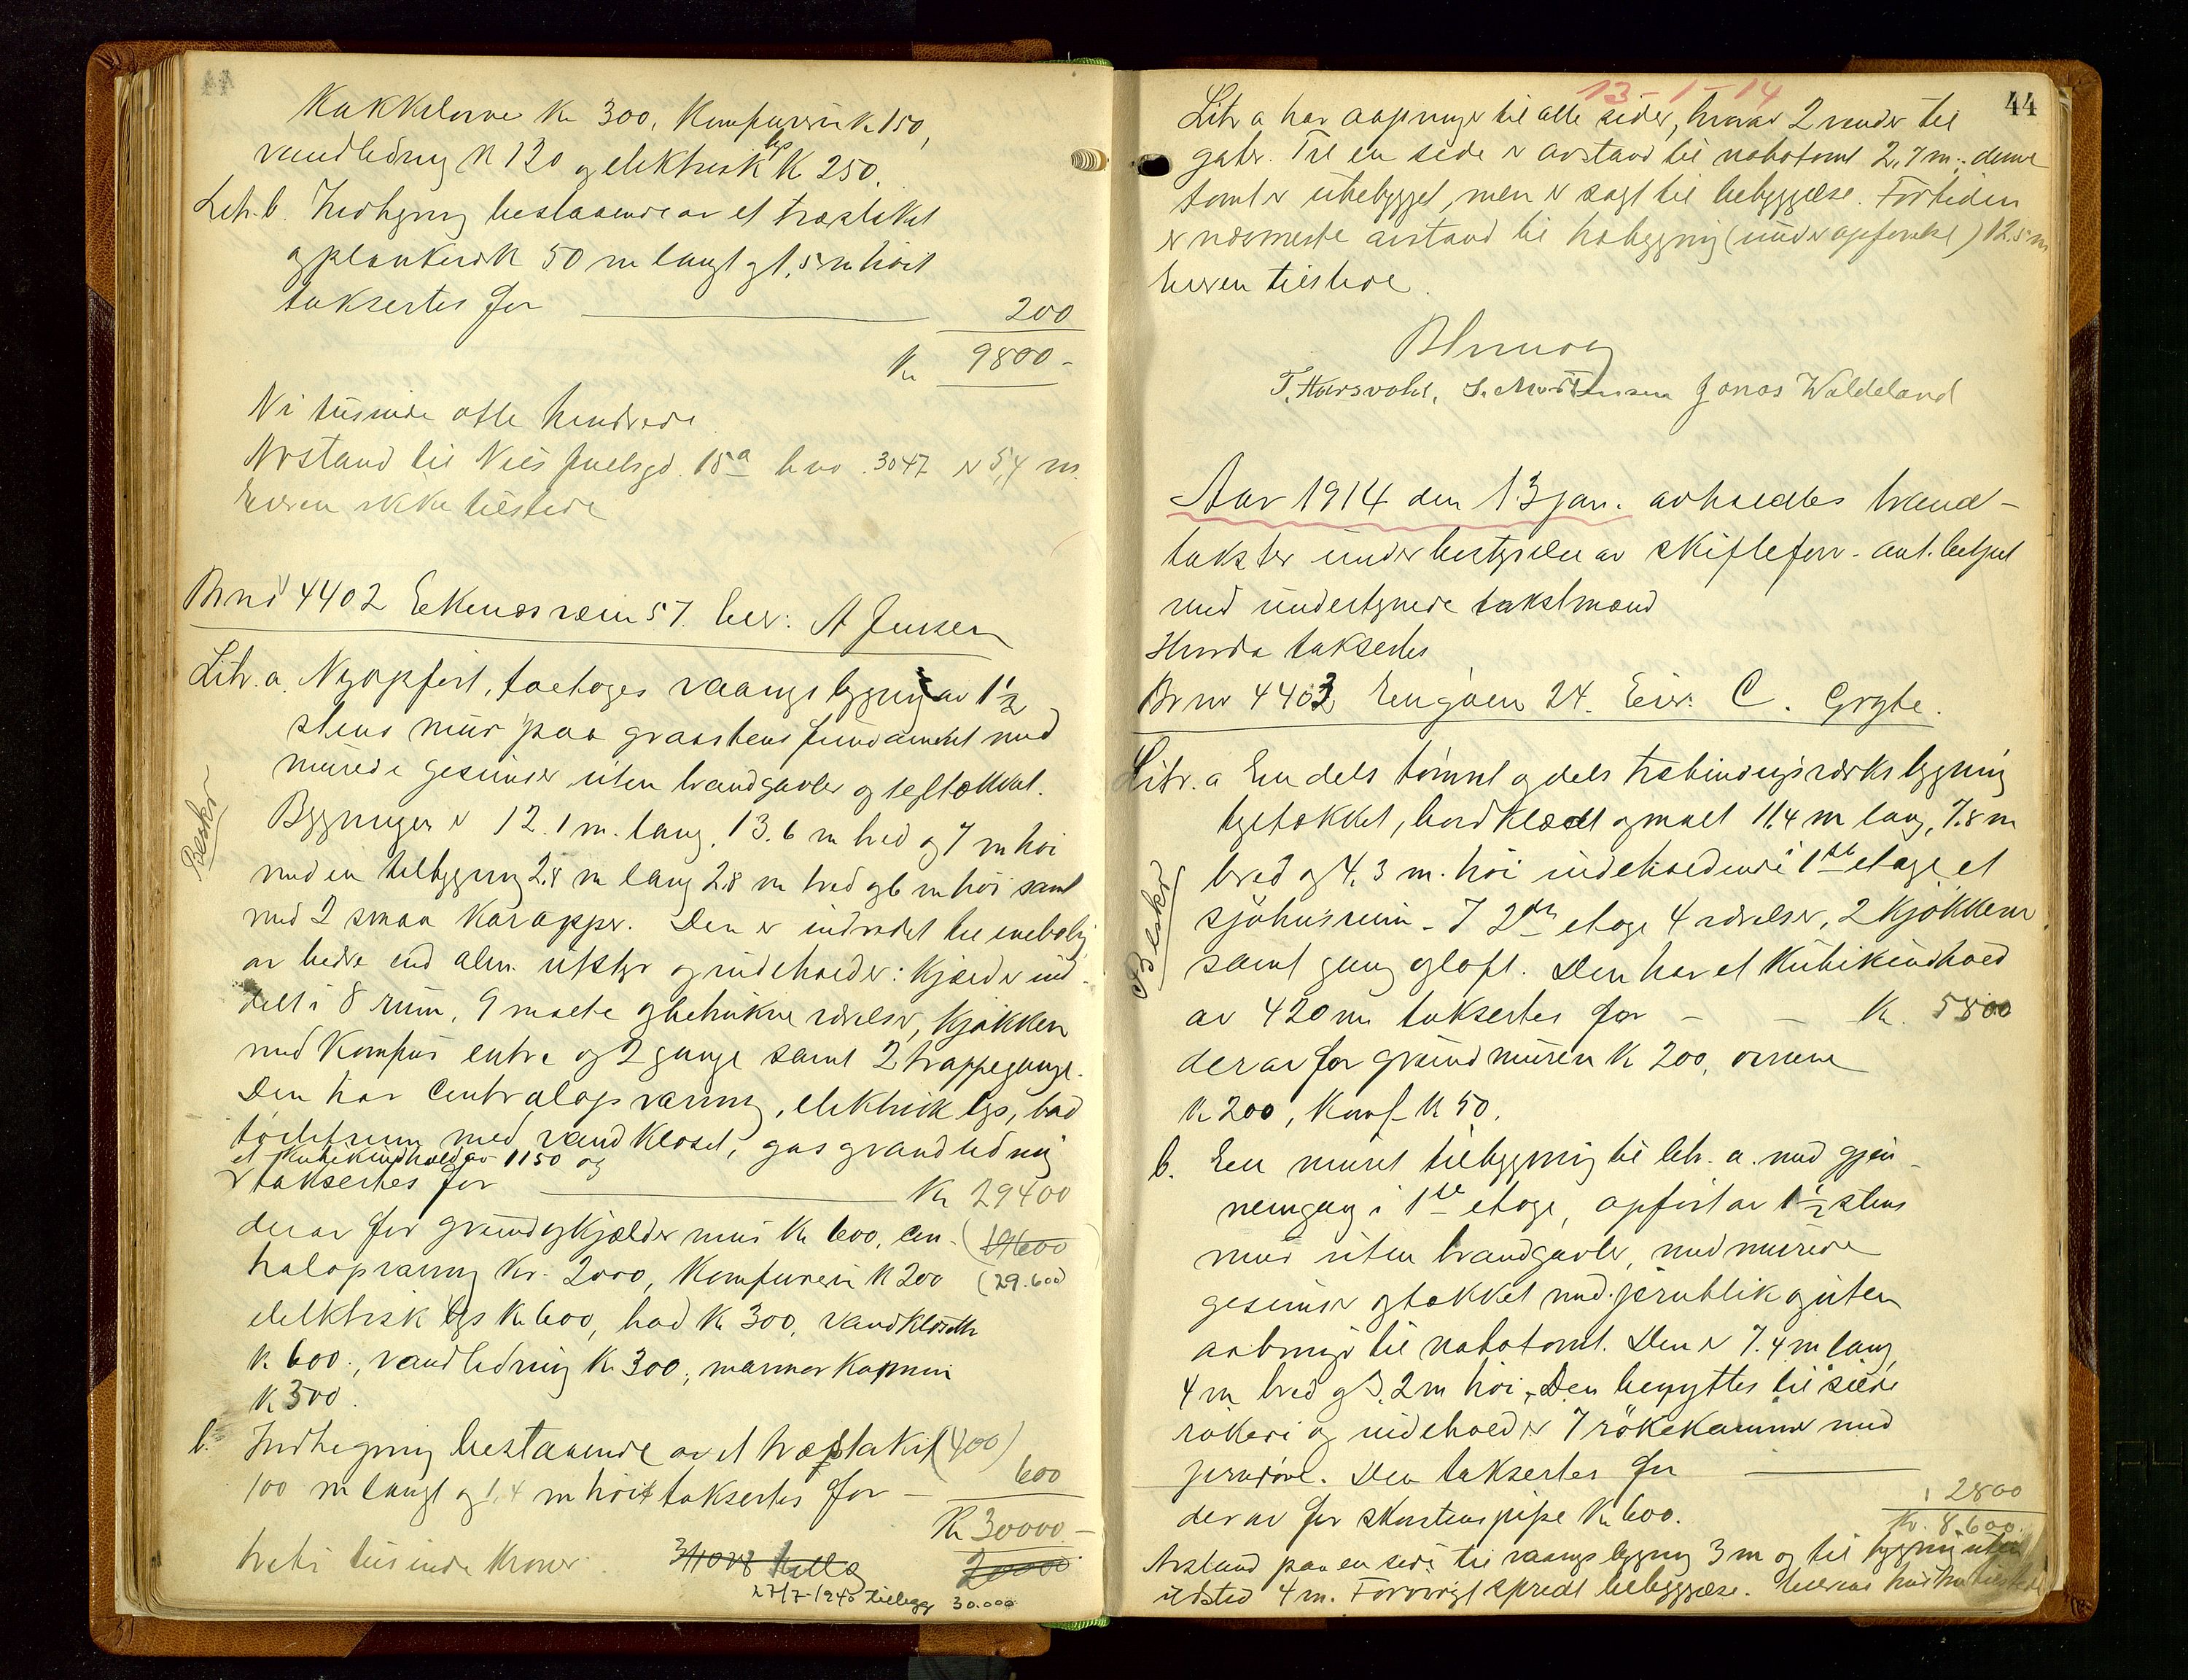 Kakkelovne Kr 300, Komfurer Kr 150,
vandledning K 120 og elektrisk lys K 250.
Litr. b. Indhegning bestaaende av et træstakit
og plankverk 50 m langt og 1,5 m høit
taksertes for 200
Kr 9800 -
Ni tusinde otte hundrede
Avstand til Niels Juelsgd. 15a br no. 3047 er 5,4 m.
Eieren ikke tilstede
Brno 4402 Eekenæsveien 57. Eier: A Jensen
Litr. a. Nyopført, toetages vaaningsbygning av 1 1/2
stens mur paa graastens fundament med
murede gesimser uten brandgavler og tegltækket.
Beskr
Bygningen er 12.1 m. lang, 13.6 m bred og 7 m høi
med en tilbygning 2,8 m lang 2.8 m bred og 6 m høi samt
med 2 smaa karapper. Den er indredet til enebolig
av bedre end alm. utstyr og indeholder: Kjælder ind-
delt i 8 rum, 9 malte og betrukne værelser, kjøkken
med komfur entre og 2 gange samt 2 trappegange.
Den har Centralopvarmning, elektrisk lys, bad
toiletrum med vandkloset, gas og vandledning
et kubikindhold av 1150 og
taksertes for Kr 29400
derav for grund og kjælder mur Kr 600, cen- (19600
tralopvarmning Kr. 2000, Komfuren K 200 (29.600)
elektrisk lys Kr 600, bad Kr 300, vandklosetter
K 600., vandledning Kr 300., marmor kamin
K 300.
b. Indhegning bestaaende av et træstakit (400)
100 m langt og 1,4 m høit taksertes for - 600
Kr 30000 -
treti tusinde kroner. 20000
27/7-1945 tillegg 30.000
13-1-14
44
Litr a har aapninger til alle sider, hvorav 2 vender til
gater. Til en side er avstand til nabotomt 2,7 m.. denne
tomt er ubebygget, men er solgt til bebyggelse. Fortiden
er nærmeste avstand til nabygning (under opførelse) 12,5 m
Eieren tilstede.
T. Haarsvold, S. Mortensen Jonas Waldeland
Aar 1914 den 13 jan. avholdtes brand-
takster under bestyrelse av skiftefor. aut. betjent
med undertegnede takstmænd
Hvorda taksertes
Br no 4403 Engøen 24. Eier: C. Gryte.
Litr. a En dels tømret og dels træbindingsverks bygning
teglstækket, bordklædt og malt 11,4 m lang, 7.8 m
Beskr
bred og 4,3 m. høi indeholdende i 1ste etage et
sjøhusrum. I 2den etage 4 værelser, 2 kjøkkener
samt gang og loft. Den har et kubikindhold
av 420 m taksertes for - - Kr. 5800
derav for grundmuren K 200, ovnene
K 200, Komf. K 50.
b. En muret tilbygning til litr. a. med gjen-
nemgang i 1ste etage, opført av 1 1/2 stens
mur uten brandgavler, med murede
gesimser og tækket med jernblik og uten
aabning til nabotomt. Den er 7.4 m lang,
4 m bred og 5,2 m høi. Den benyttes til silde
røkeri og indeholder 7 røkekammer med
jerndøre. Den taksertes for 2800
derav for skorstenspipe Kr 600. Kr. 8.600.
Avstand paa en side til vaaningsbygning 3 m og til bygning uten
ildsted 4 m. Forøvrigt spredt bebyggelse.